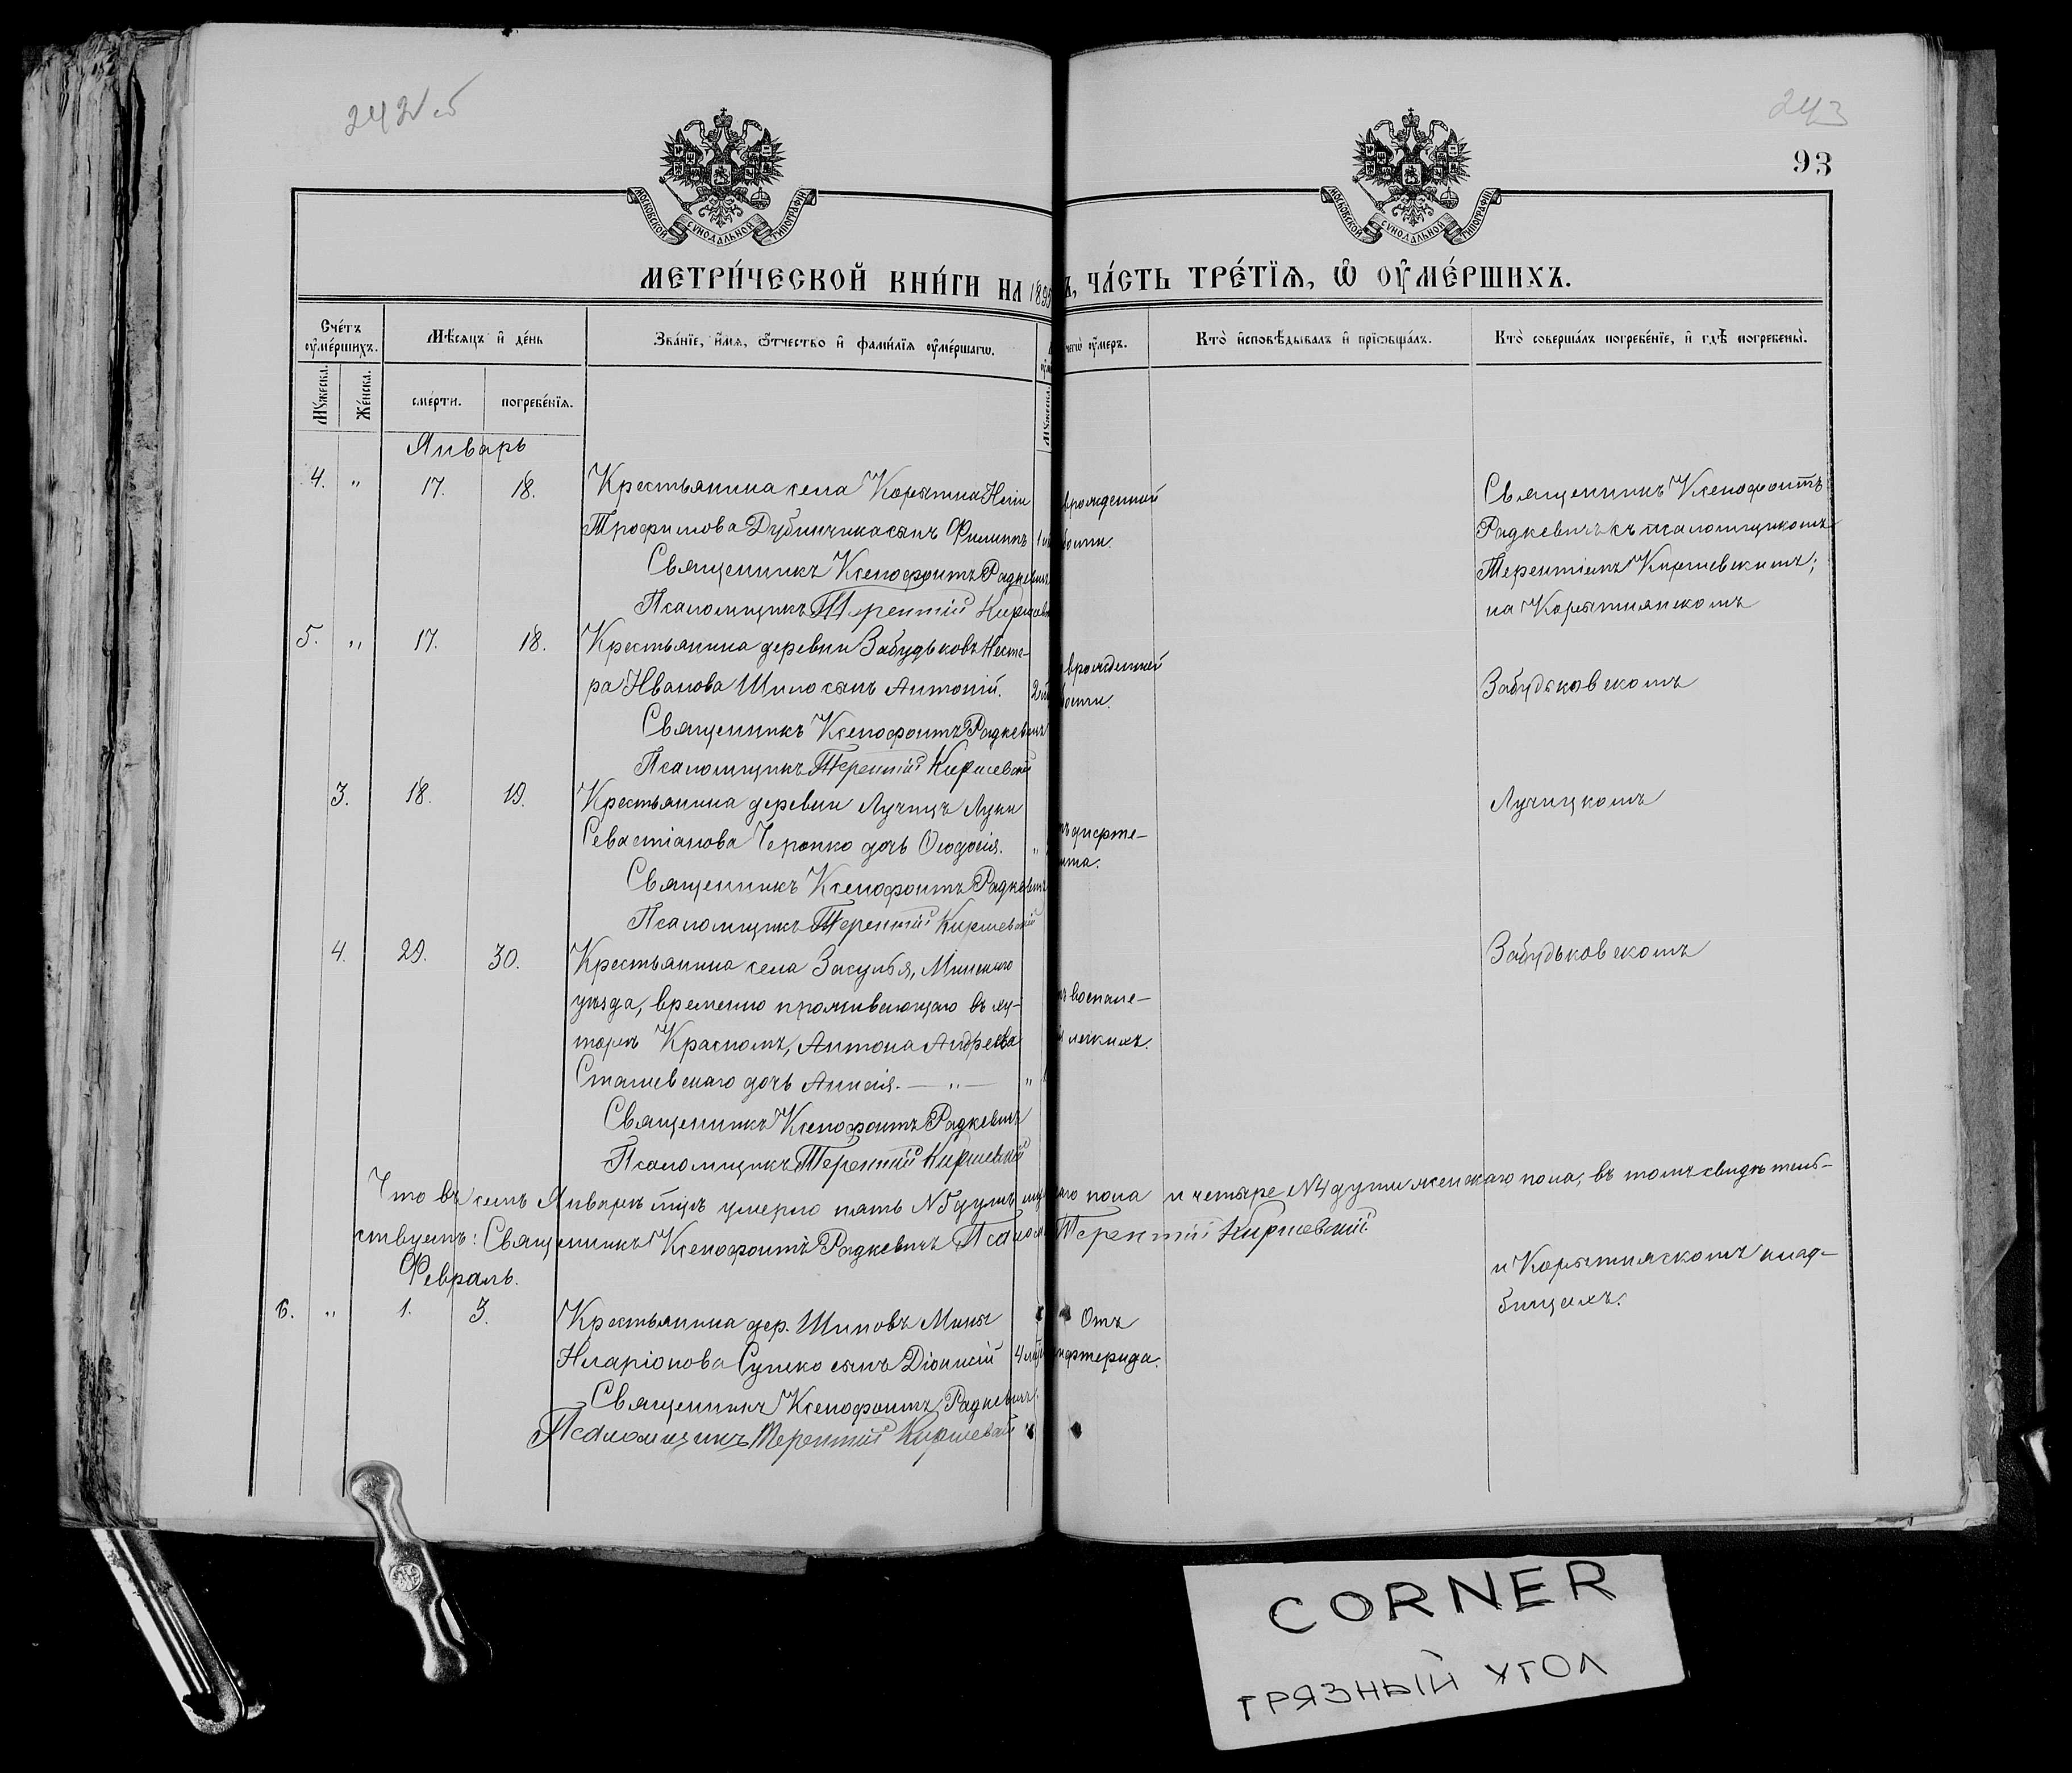 242 об
243
93
МОСКОВСКОЙ СѴНОДАЛЬНОЙ ТИПОГРАФІИ
МОСКОВСКОЙ СѴНОДАЛЬНОЙ ТИПОГРАФІИ
МЕТРИ́ЧЕСКОЙ КНИ́ГИ НА 189
Ъ, ЧА́СТЬ ТРЕ́ТЇѦ, Ѡ ОУМЕ́РШИХЪ.
Сче́тъ оумершихъ.
Мѣсяцъ и день
Зва́нїе, имѧ, ѻтчество и фами́лїѧ оуме́ршагѡ.
чегѡ оумеръ.
Кто̀ исповѣдывалъ и прїѡбща́лъ.
Кто̀ соверша́лъ погребе́нїе, и гдѣ погребены̀.
Мꙋжеска.
Же́нска.
сме́рти.
погребе́нїѧ.
Мꙋжеска.
Январь
4. " 17. 18. Крестьянина села Корытна
Трофимова Дубинчика сынъ Филиппъ
Священникъ Ксенофонтъ Радкевичъ
Псаломщикъ Терентій Киршевскій
врожденной
Священникъ Ксенофонтъ
Радкевичъ съ псаломщикомъ
Терентіемъ Киршевскимъ;
на Корытнянскомъ
5. " 17. 18. Крестьянина деревни Забудьковъ Несте-
ра Иванова Шило сынъ Антоній.
Священникъ Ксенофонтъ Радкевичъ
Псаломщикъ Терентій Киршевскій
врожденной
Забудьковскомъ
3. 18. 19. Крестьянина деревни Лучицъ Луки
Севастіанова Черопко дочь Ѳеодосія. "
Священникъ Ксенофонтъ Радкевичъ
Псаломщикъ Терентій Киршевскій
Лучицкомъ
4. 29. 30. Крестьянина села Засулья, Минскаго
уѣзда, временно проживающаго въ ху-
торѣ Красномъ, Антона Андреева
Сташевскаго дочь Анисія. — " — "
Священникъ Ксенофонтъ Радкевичъ
Псаломщикъ Терентій Киршевскій
воспале-
легкихъ.
Забудьковскомъ
Что въ семъ Январѣ мцѣ умерло пять №5 душъ
пола и четыре №4 души женскаго пола, въ томъ свидѣтель-
ствуемъ: Священникъ Ксенофонтъ Радкевичъ
Терентій Киршевскій
Февраль.
6. " 1. 3. Крестьянина дер. Шиповъ Мины
Иларіонова Сушко сынъ Діонисій
Священникъ Ксенофонтъ Радкевичъ.
Псаломщикъ Терентій Киршевскій
Отъ
и Корытнянскомъ клад-
бищахъ.
CORNER
ГРЯЗНЫЙ УГОЛ